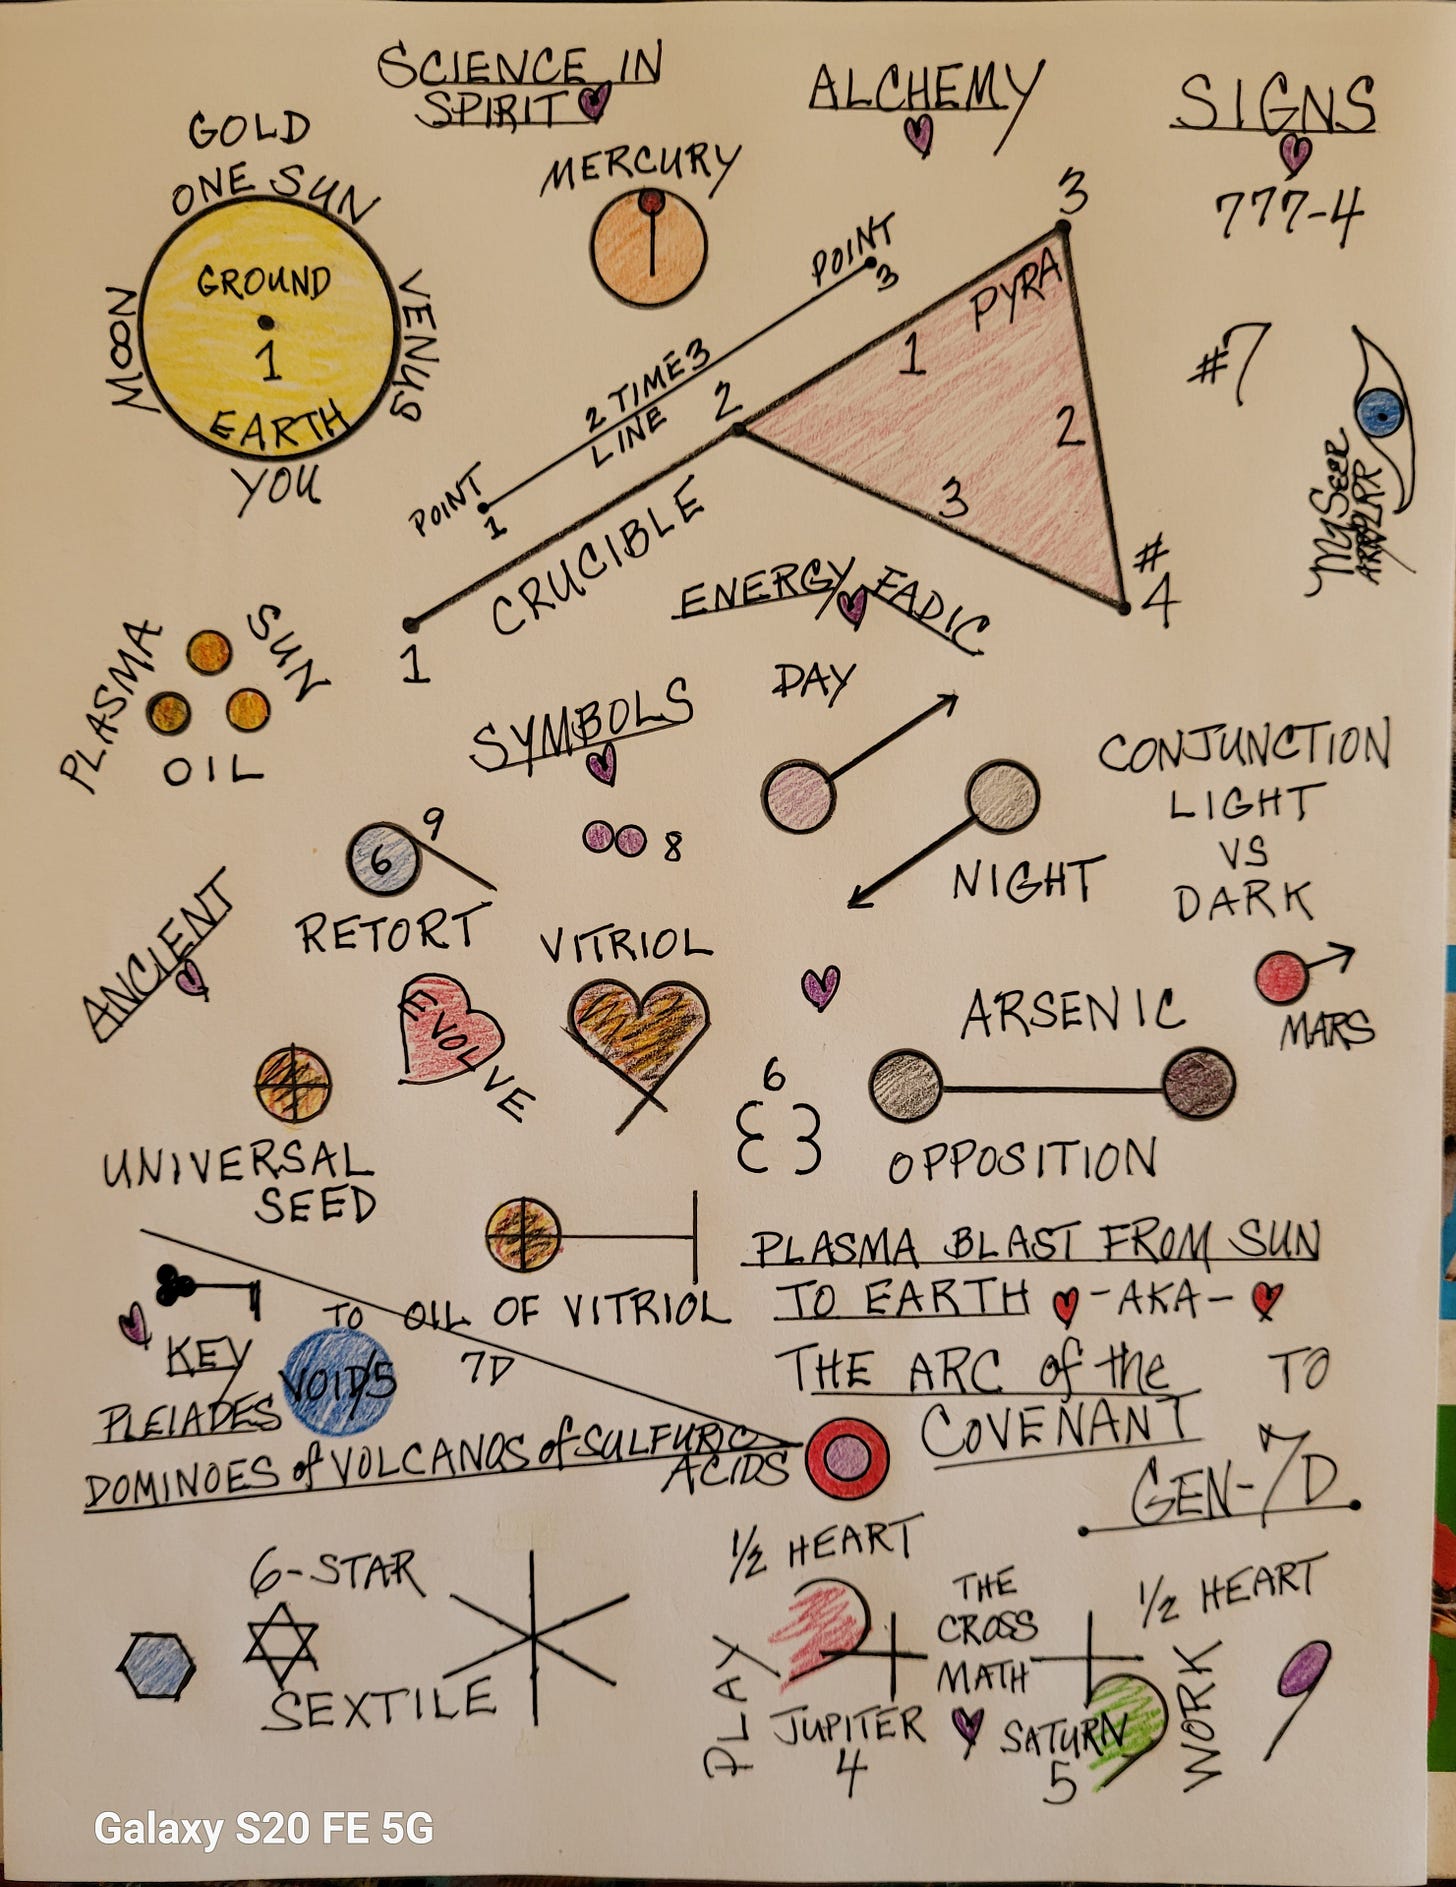 SCIENCE IN
SPIRIT
ALCHEMY
SIGNS
777-4
GOLD
ONE SUN
MOON
VENUS
GROUND
1
EARTH
YOU
MERCURY
POINT
3
2 TIME3
LINE
POINT
1
3
PYRA
1
2
3
2
#
4
CRUCIBLE
1
#7
MYSEER
ENERGY FADIC
PLASMA
SUN
OIL
SYMBOLS
DAY
NIGHT
CONJUNCTION
LIGHT
VS
DARK
9
6
RETORT
8
VITRIOL
ANCIENT
EVOLVE
MARS
ARSENIC
OPPOSITION
6
UNIVERSAL
SEED
OIL OF VITRIOL
PLASMA BLAST FROM SUN
TO EARTH -AKA-
THE ARC of the TO
COVENANT
GEN-7D
KEY
TO
VOID/5
7D
PLEIADES
DOMINOES of VOLCANOS of SULFURIC
ACIDS
6-STAR
SEXTILE
1/2 HEART
PLAY
JUPITER
4
THE
CROSS
MATH
1/2 HEART
SATURN
5
WORK
Galaxy S20 FE 5G